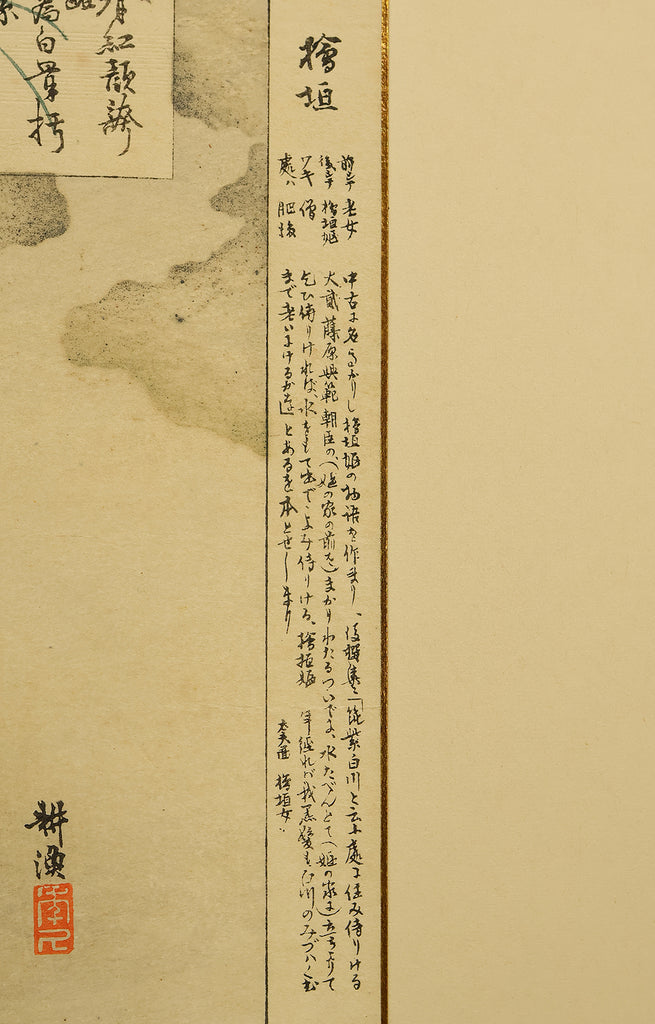 檜垣
前シテ 老女
後シテ 檜垣嫗
ワキ 僧
處ハ 肥後
中古に名高かりし檜垣嫗の物語を作れり、後撰集に「筑紫白川と云ふ處に住み侍りける
大貳藤原興範朝臣の（嫗の家の前を）まかりわたるついでに、水たべんとて（嫗の家に）立ちよりて
乞ひ侍りければ、水をもて出でゝよみ侍りける、檜垣嫗 年經れば我黒髪も白川のみづハくむ
まで老いにけるかな」とあるを本とせしなり
檜垣女
紅顔
白
耕漁